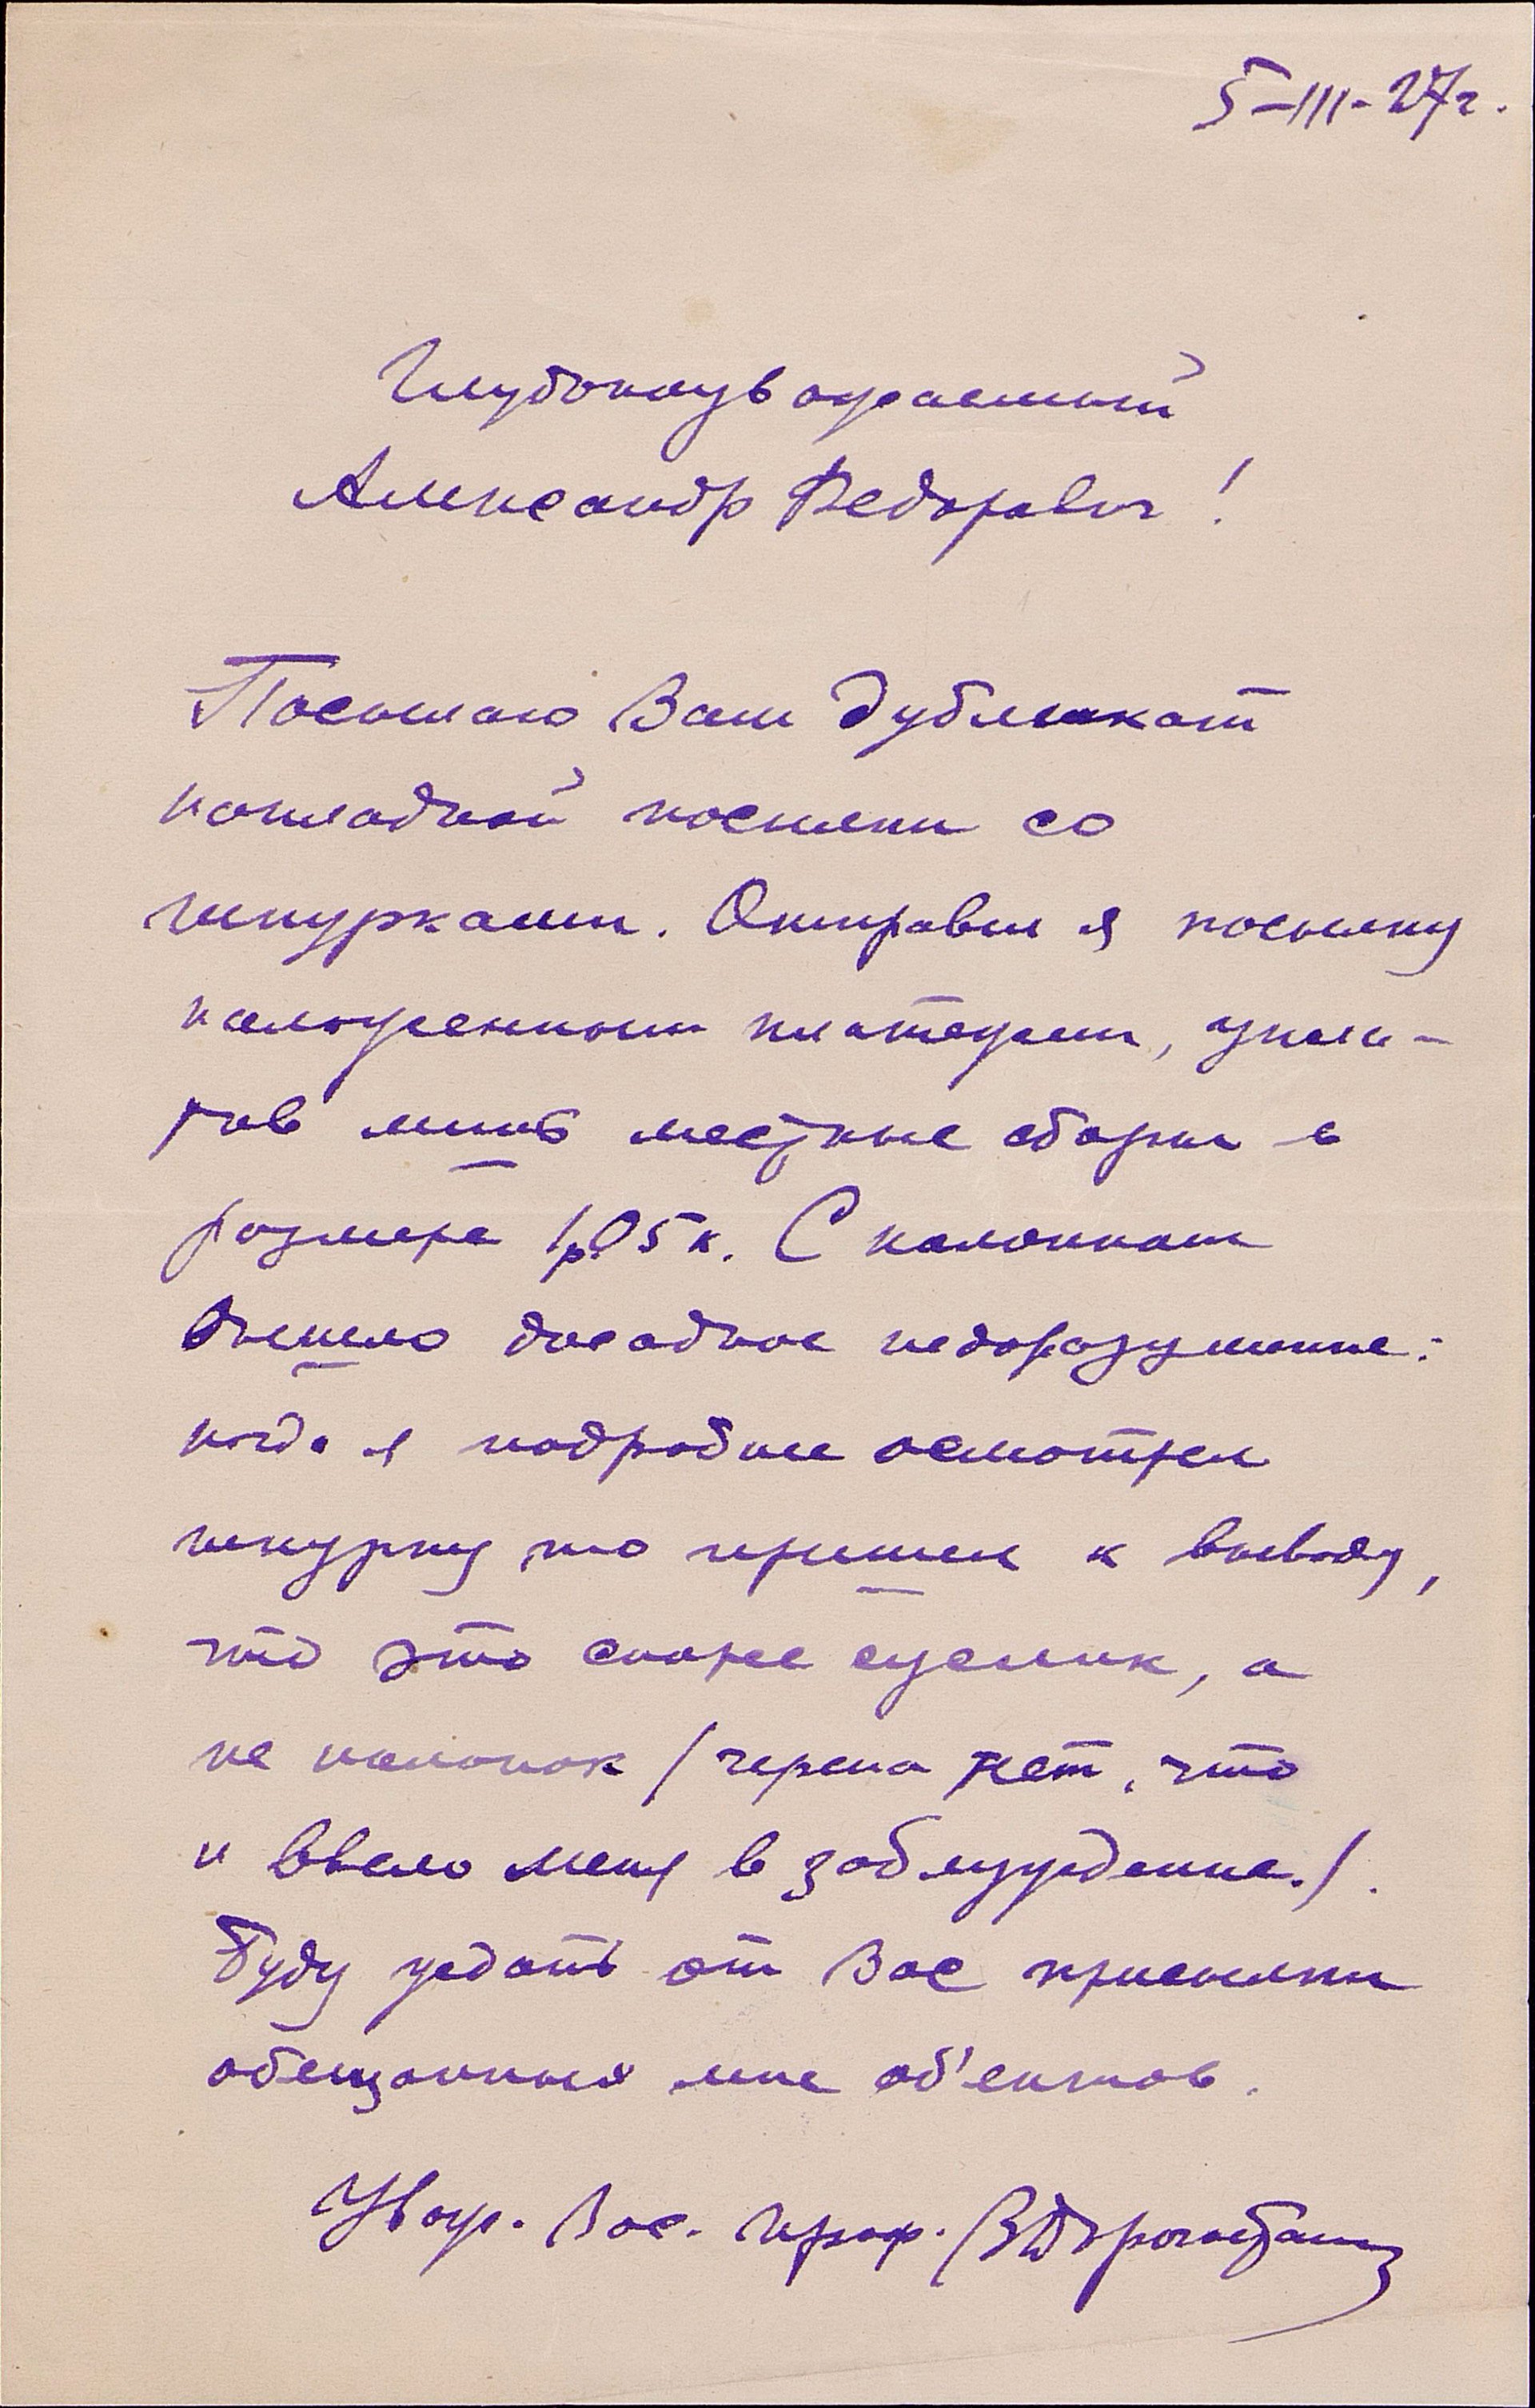 5-III-27г.
Глубокоуважаемый
Александр Федорович!
Посылаю Вам дубликат
накладной посылки со
шкурками. Отправил я посылку
наложенным платежем, упла-
тив лишь местные сборы в
размере 1р.05к. С колонком
вышло досадное недоразумение:
когда я подробнее осмотрел
шкурку, то пришел к выводу,
что это скорее суслик, а
не колонок /черепа нет, что
и ввело меня в заблуждение./.
Буду ждать от Вас присылки
обещанных мне об'ектов.
Уваж. Вас. проф. В Дорогостайский